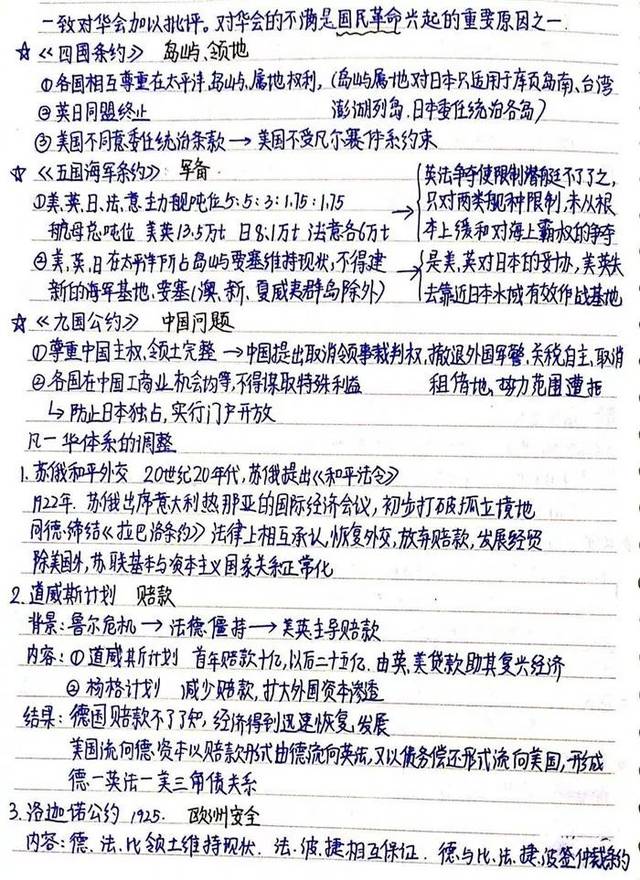 一致对华会加以批评。对华会的不满是国民革命兴起的重要原因之一.
☆《四国条约》 岛屿、领地
①各国相互尊重在太平洋岛屿、属地权利,(岛屿属地对日本只适用于库页岛南、台湾
②英日同盟终止 澎湖列岛.日本委任统治各岛)
③美国不同意委任统治条款→美国不受凡尔赛体系约束
☆《五国海军条约》 军备
①美、英、日、法、意主力舰吨位5:5:3:1.75:1.75
航母总吨位 美英13.5万t 日8.1万t 法意各6万t
→ 英法争夺使限制潜艇不了了之,
只对两类舰种限制,未从根
本上缓和对海上霸权的争夺
②美、英、日在太平洋下所占岛屿要塞维持现状,不得建
新的海军基地、要塞(澳、新、夏威夷群岛除外)
→ 是美、英对日本的妥协,美英失
去靠近日本水域有效作战基地
☆《九国公约》 中国问题
①尊重中国主权、领土完整→中国提出取消领事裁判权,撤退外国军警、关税自主,取消
②各国在中国工商业机会均等,不得谋取特殊利益 租借地、势力范围遭拒
↳防止日本独占,实行门户开放
凡一华体系的调整
1.苏俄和平外交 20世纪20年代,苏俄提出《和平法令》
1922年.苏俄出席意大利热那亚的国际经济会议,初步打破孤立境地
同德缔结《拉巴洛条约》法律上相互承认,恢复外交,放弃赔款,发展经贸
除美国外,苏联基本与资本主义国家关系正常化
2.道威斯计划 赔款
背景:鲁尔危机→法德僵持→美英主导赔款
内容:①道威斯计划 首年赔款十亿,以后二十五亿.由英、美贷款助其复兴经济
②杨格计划 减少赔款,扩大外国资本渗透
结果:德国赔款不了了知,经济得到迅速恢复、发展
美国流向德、资本以赔款形式由德流向英法,又以债务偿还形式流向美国,形成
德一英法一美三角债关系
3.洛迦诺公约 1925. 欧洲安全
内容:德、法、比领土维持现状.法、波、捷相互保证.德与比、法、捷、波签仲裁条约